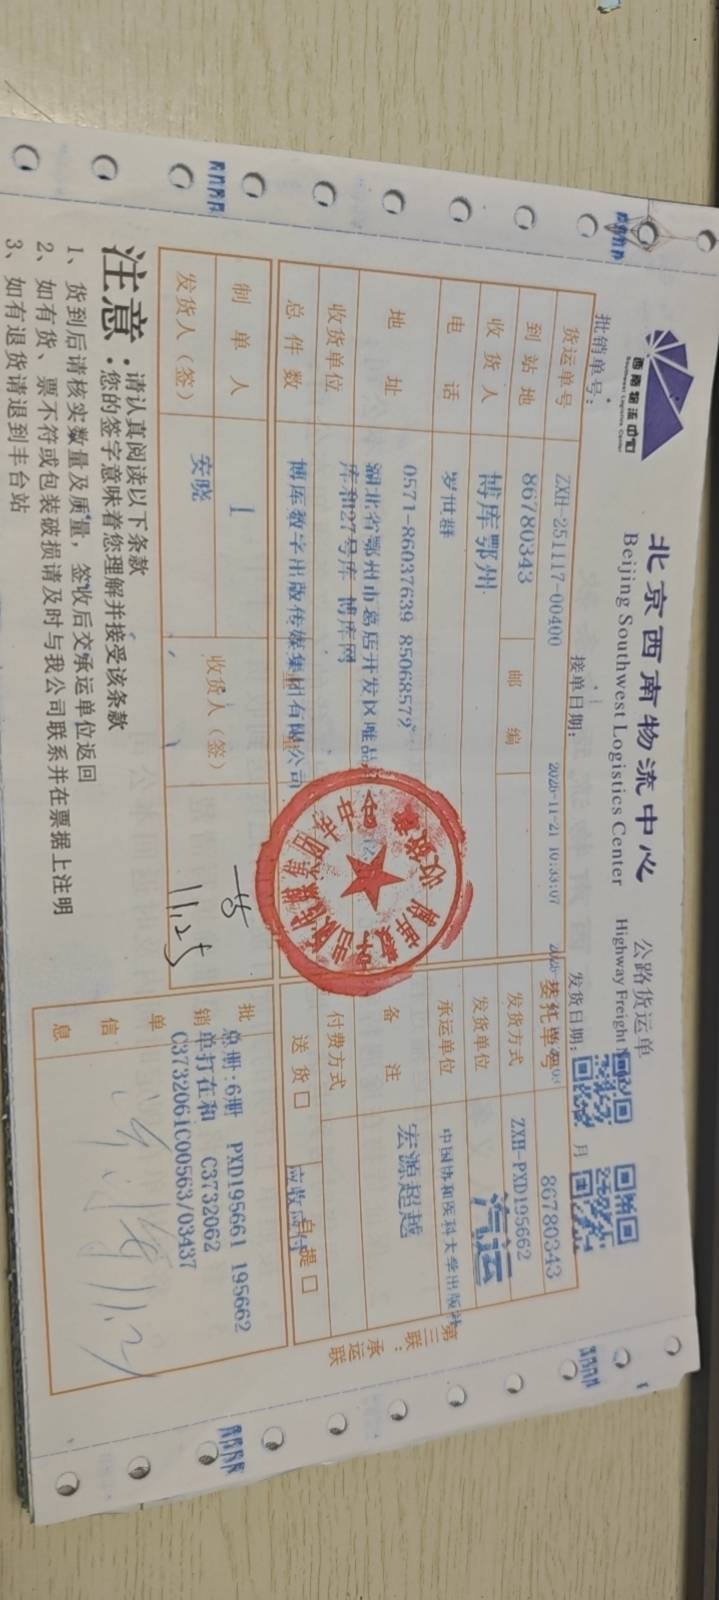 西南物流中心
Southwest Logistics Center
北京西南物流中心
Beijing Southwest Logistics Center
公路货运单
Highway Freight
批销单号:
接单日期: 2025-11-21 10:33:07
发货日期:
月
货运单号 ZXH-251117-00400
委托单号 86780343
到站地 86780343
邮编
发货方式 ZXH-PXD195662
收货人 博库鄂州
发货单位 汽运
电话 罗世群
承运单位 中国协和医科大学出版社
地址 0571-86037639 85068572
湖北省鄂州市葛店开发区唯品
库和27号库 博库网
备注 宏源超越
收货单位
付费方式
总件数 博库数字出版传媒集团有限公司
送货□ 自提□
应收
制单人 1
收货人(签)
发货人(签) 安晓
11.25
批销单信息
总册:6册 PXD195661 195662
单打在和 C3732062
C3732061C00563/03437
第三联:承运联
注意:
请认真阅读以下条款
您的签字意味着您理解并接受该条款
1、货到后请核实数量及质量，签收后交承运单位返回
2、如有货、票不符或包装破损请及时与我公司联系并在票据上注明
3、如有退货请退到丰台站